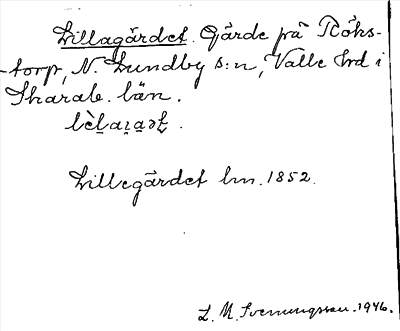 Lillagärdet. Gärde på Röks-
-torp, N. Lundby s:n, Valle hrd i
Skarab. län.
Lillegärdet lm. 1852.
L. M. Svenungsson. 1946.